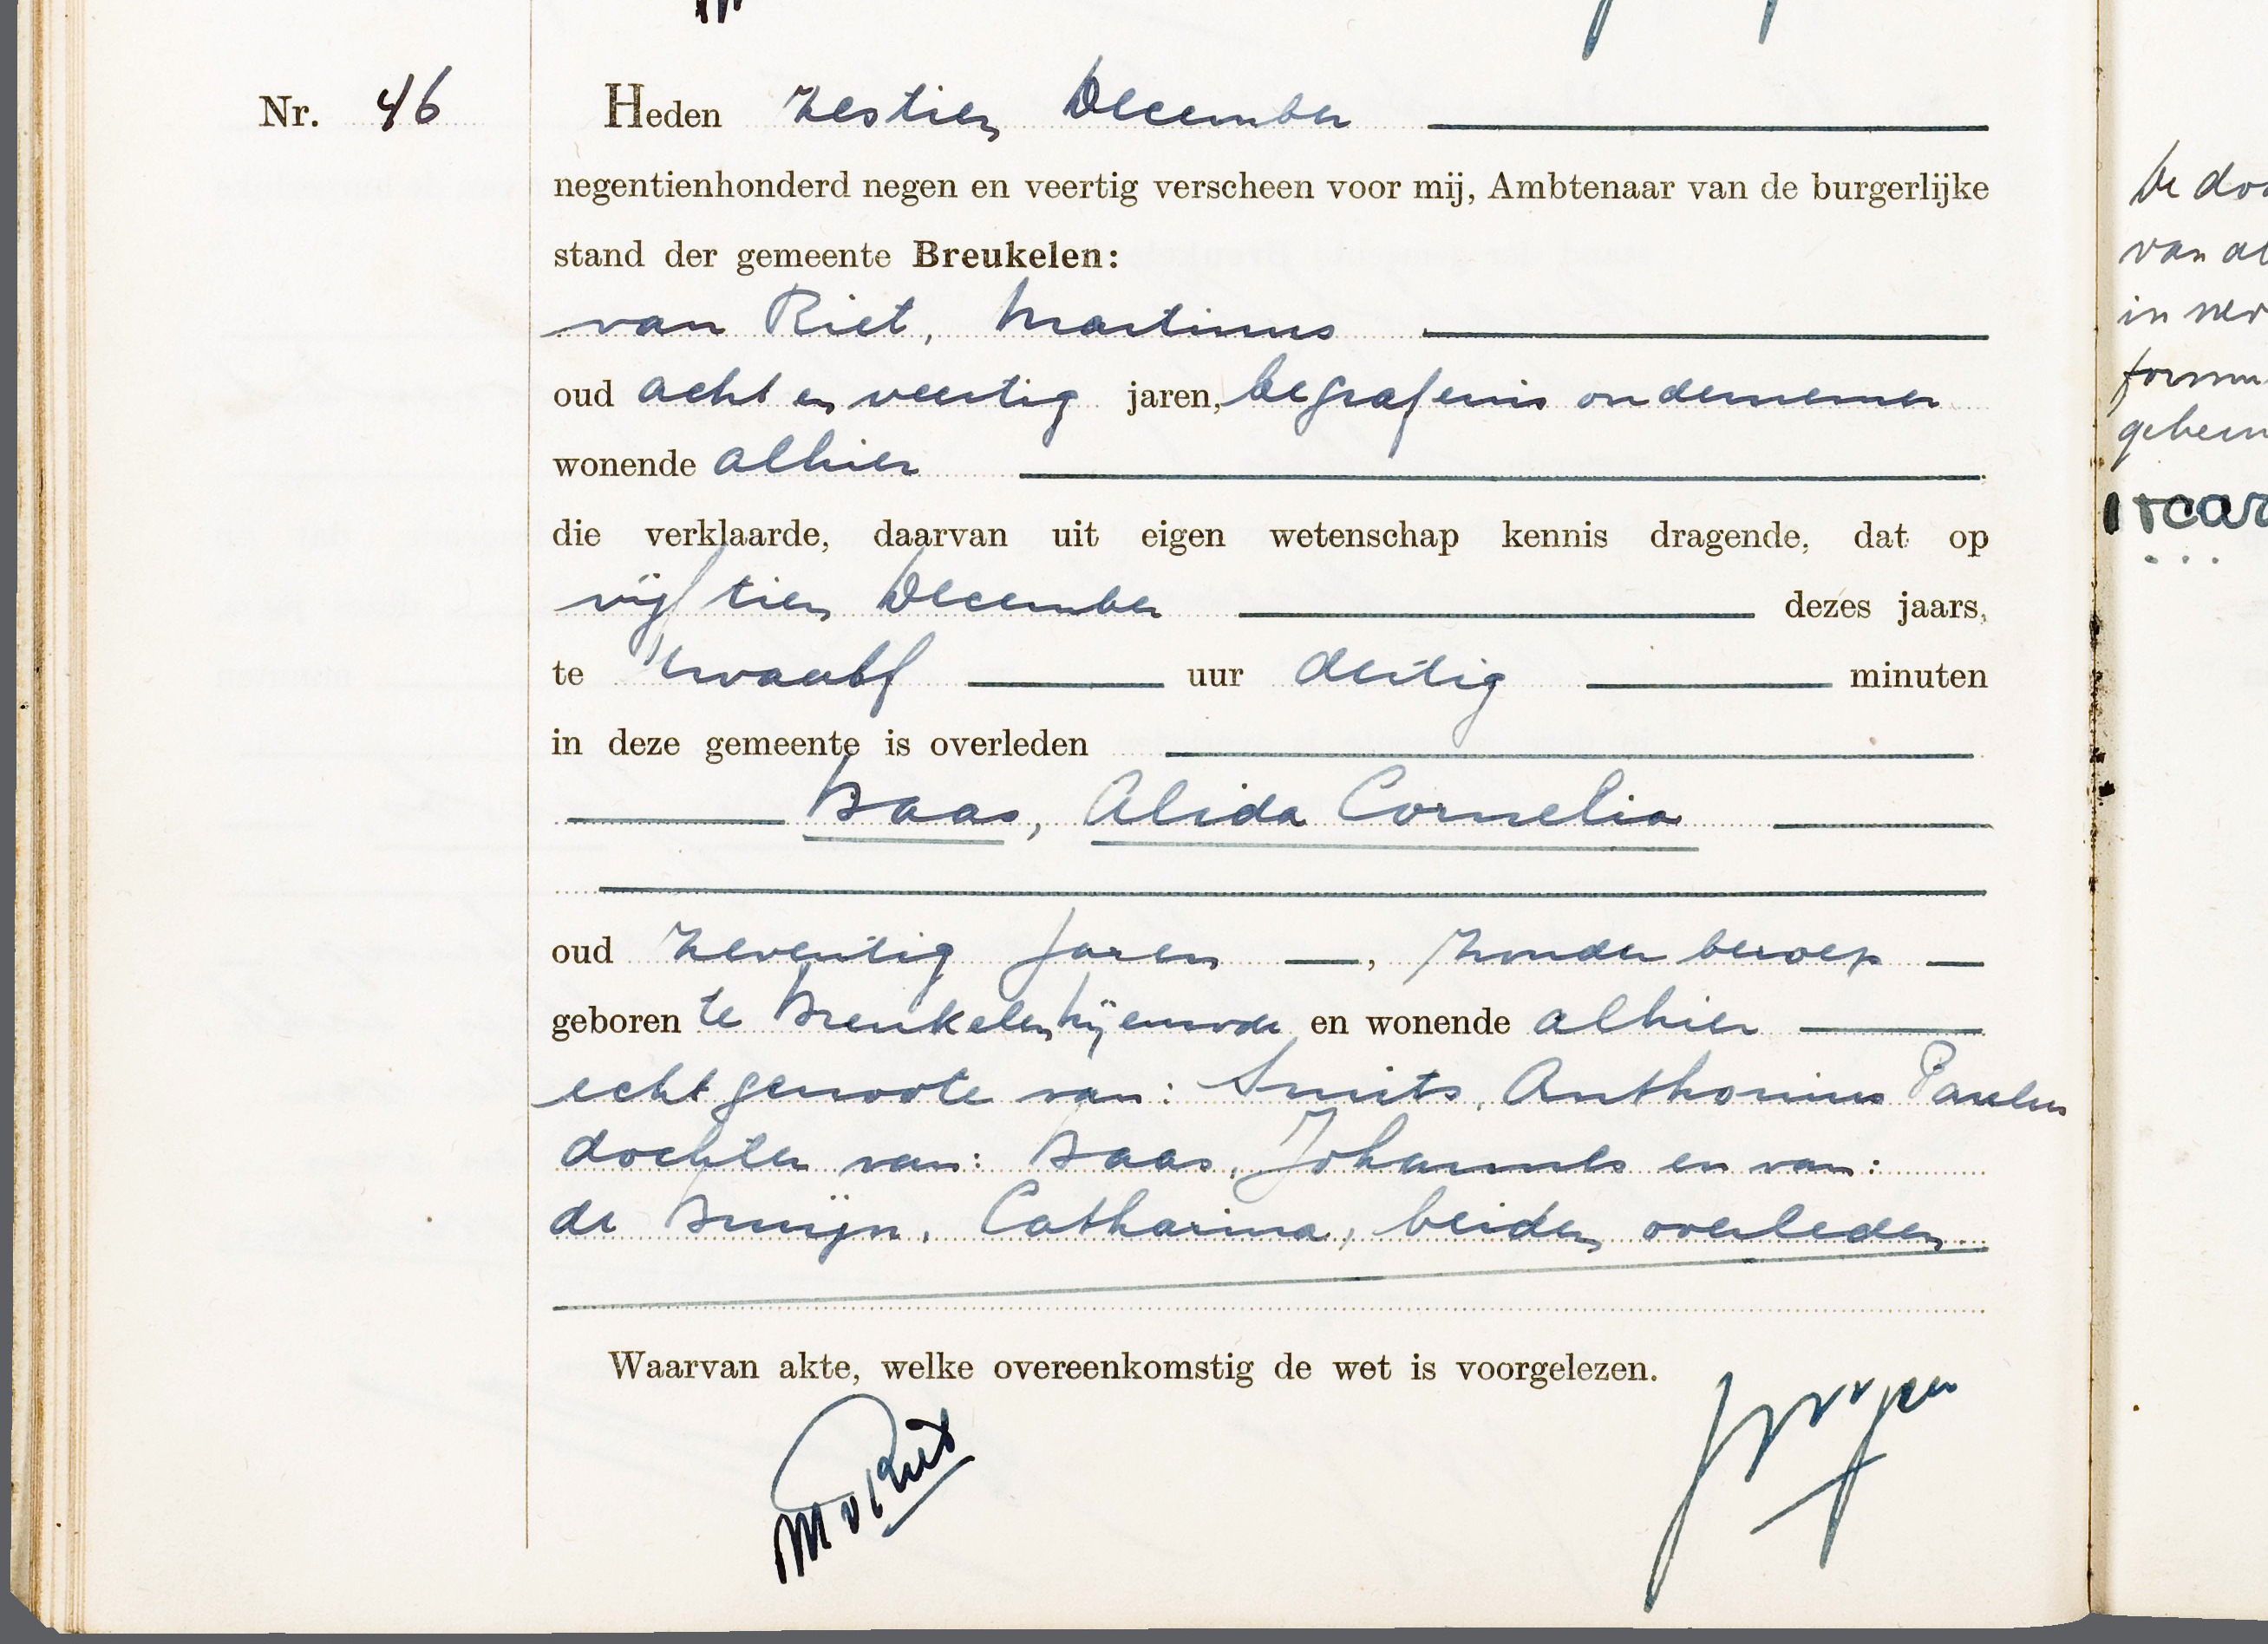 Nr. 46
Heden zestien December
negentienhonderd negen en veertig verscheen voor mij, Ambtenaar van de burgerlijke
stand der gemeente Breukelen:
van Riet, Martinus
oud acht en veertig jaren, begrafenis ondernemer
wonende alhier
die verklaarde, daarvan uit eigen wetenschap kennis dragende, dat op
vijftien December dezes jaars,
te twaalf uur dertig minuten
in deze gemeente is overleden
Baas, Alida Cornelia
oud zeventig jaren, zonder beroep
geboren te Breukelen Nijenrode en wonende alhier
echtgenoote van: Smits, Anthonius Paulus
dochter van: Baas, Johannes en van:
de Bruijn, Catharina, beiden overleden.
Waarvan akte, welke overeenkomstig de wet is voorgelezen.
M v Riet